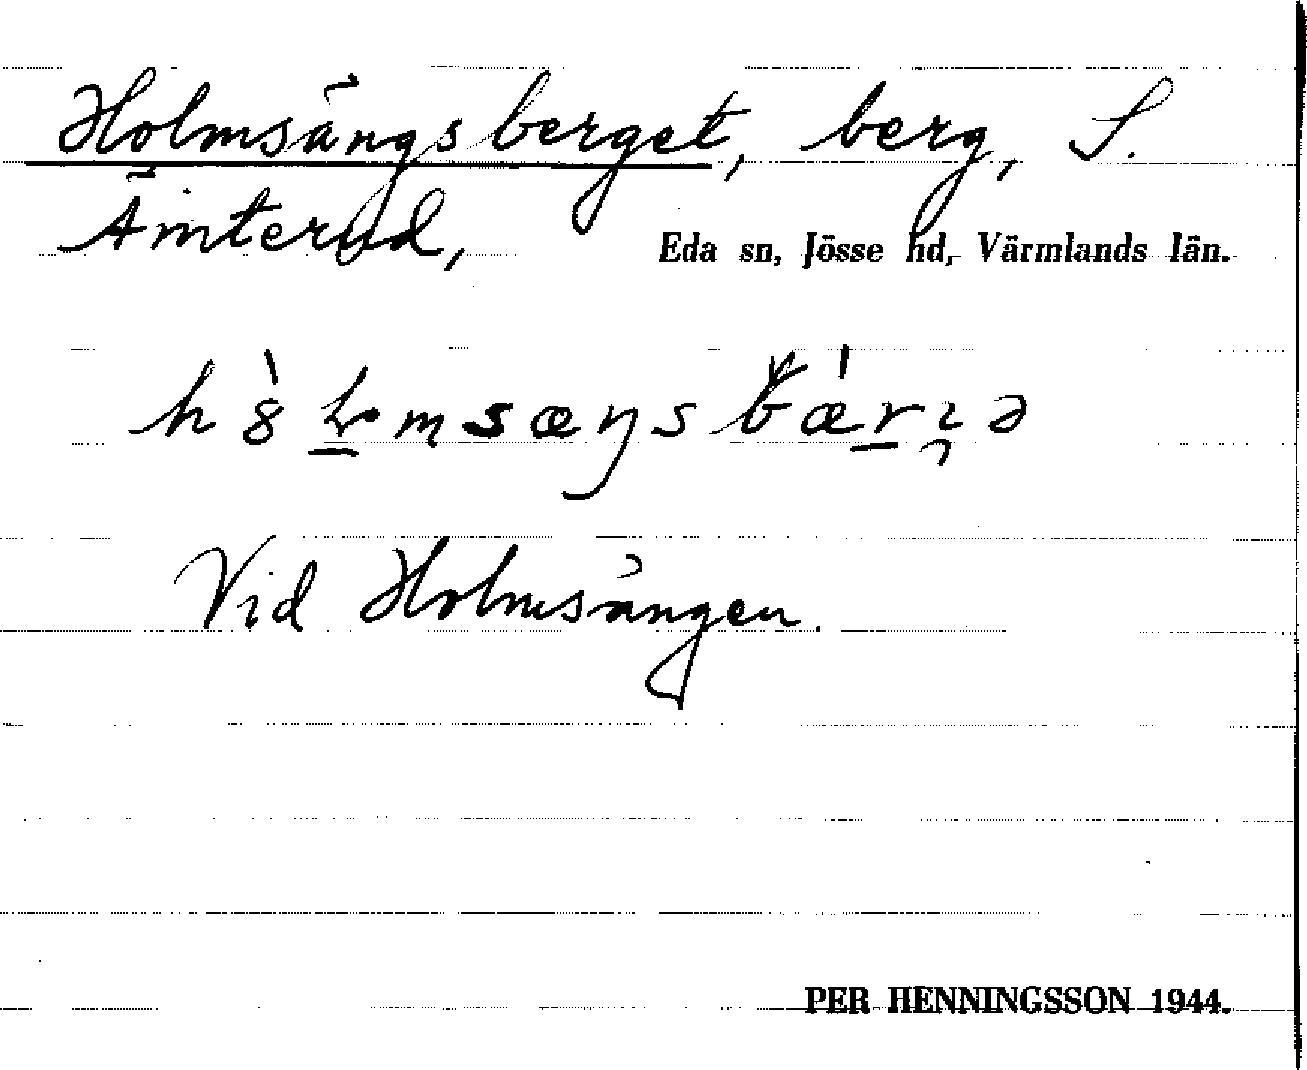 Holmsängsberget, berg, S.
Ämterud, Eda sn, Jösse hd, Värmlands län.
Vid Holmsängen.
PER HENNINGSSON 1944.